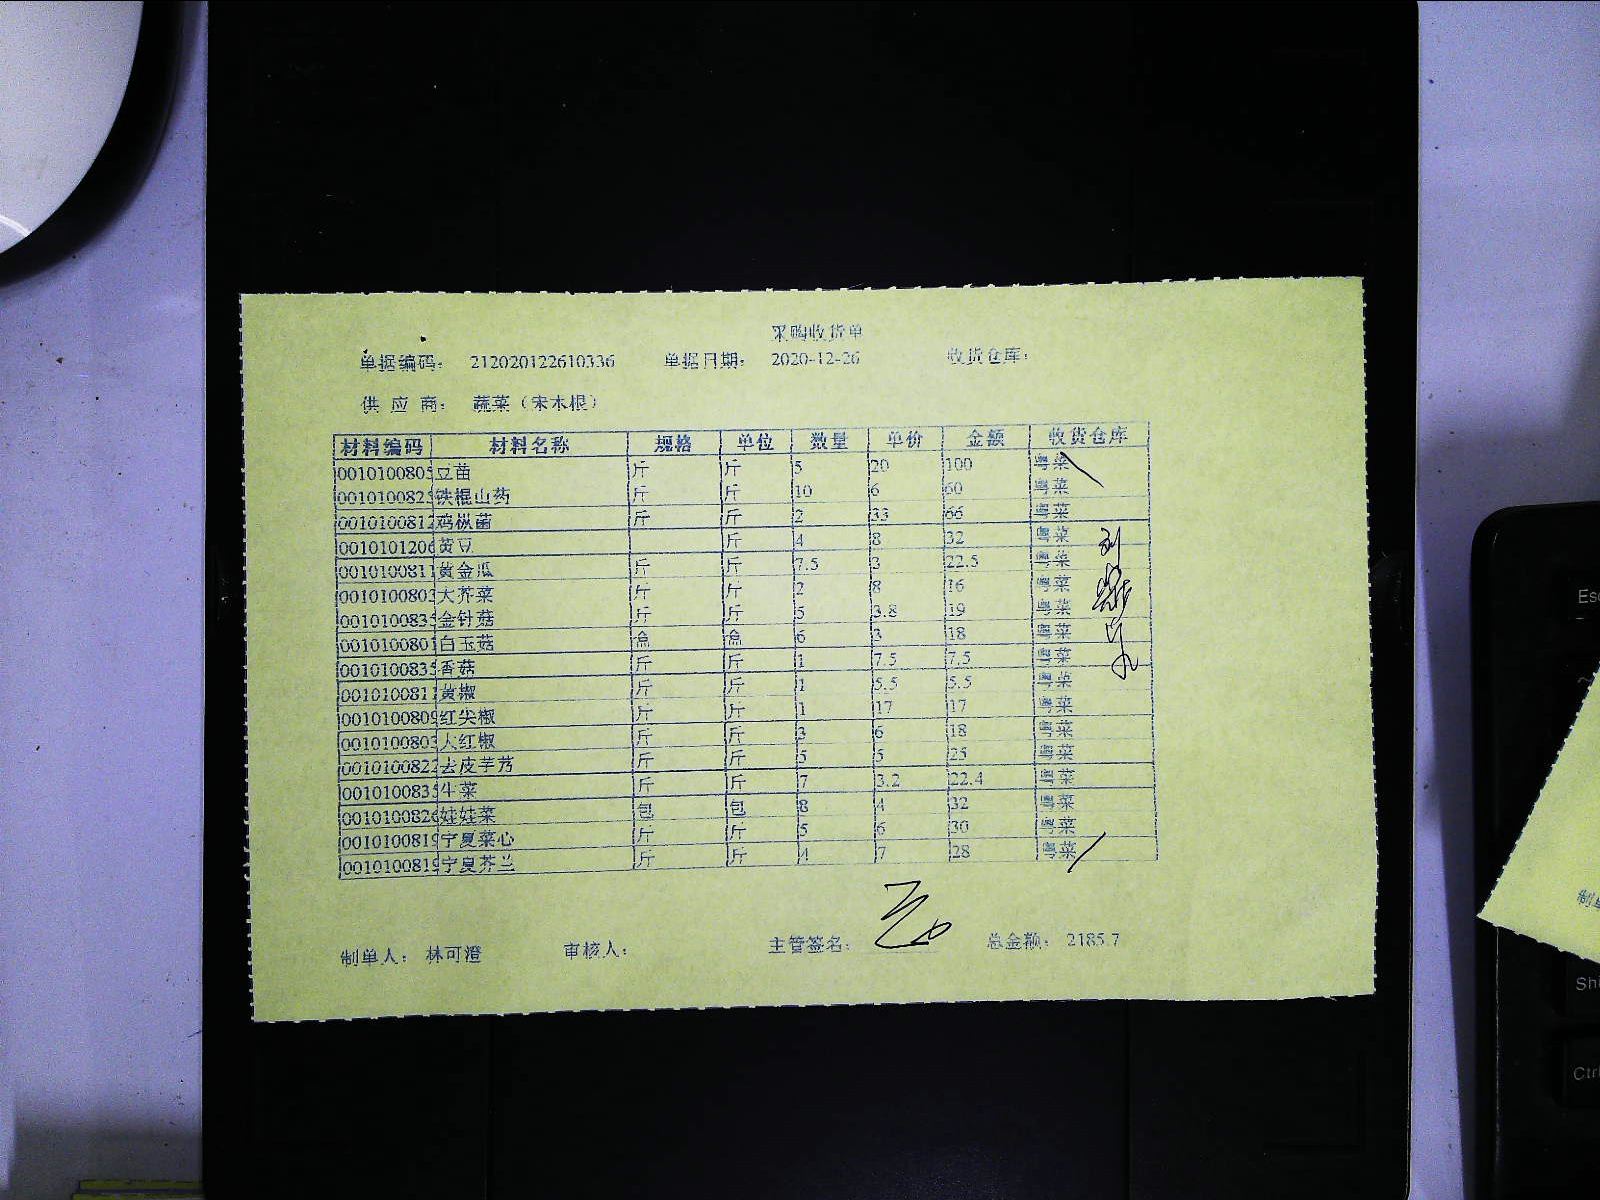 采购收货单
单据编码： 212020122610336 单据日期： 2020-12-26 收货仓库：
供 应 商： 蔬菜（宋木根）
材料编码 材料名称 规格 单位 数量 单价 金额 收货仓库
0010100805 豆苗 斤 斤 5 20 100 粤菜
0010100825 铁棍山药 斤 斤 10 6 60 粤菜
0010100812 鸡枞菌 斤 斤 2 33 66 粤菜
0010101206 黄豆 斤 4 8 32 粤菜
0010100811 黄金瓜 斤 斤 7.5 3 22.5 粤菜
0010100803 大芥菜 斤 斤 2 8 16 粤菜
0010100835 金针菇 斤 斤 5 3.8 19 粤菜
0010100801 白玉菇 盒 盒 6 3 18 粤菜
0010100835 香菇 斤 斤 1 7.5 7.5 粤菜
0010100811 黄椒 斤 斤 1 5.5 5.5 粤菜
0010100809 红尖椒 斤 斤 1 17 17 粤菜
0010100803 大红椒 斤 斤 3 6 18 粤菜
0010100822 去皮芋艿 斤 斤 5 5 25 粤菜
0010100835 生菜 斤 斤 7 3.2 22.4 粤菜
0010100826 娃娃菜 包 包 8 4 32 粤菜
0010100819 宁夏菜心 斤 斤 5 6 30 粤菜
0010100819 宁夏芥兰 斤 斤 4 7 28 粤菜
制单人： 林可澄 审核人： 主管签名： 总金额： 2185.7
Esc
Ctrl